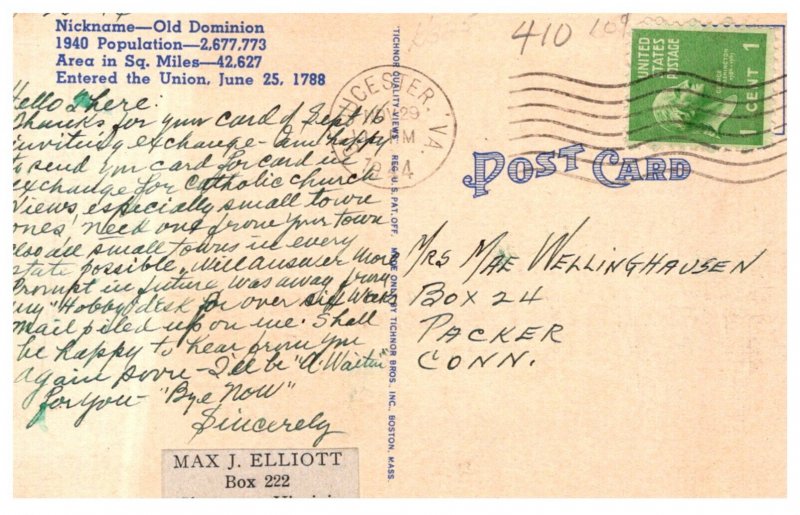 Nickname—Old Dominion
1940 Population—2,677,773
Area in Sq. Miles—42,627
Entered the Union, June 25, 1788
Hello There:
Thanks for your card of Sept 16
inviting exchange - am happy
to send you card for card in
exchange for Catholic church
views, especially small town
ones, need one from your town
also all small towns in every
state possible, Will answer more
prompt in future, was away from
my "Hobby" desk for over six weeks
mail piled up on me. Shall
be happy to hear from you
again soon - I'll be "A Waitin'"
for you - "Bye Now"
Sincerely
MAX J. ELLIOTT
Box 222
TICHNOR QUALITY VIEWS, REG. U. S. PAT. OFF. MADE ONLY BY TICHNOR BROS., INC., BOSTON, MASS.
CESTER, VA.
NOV 29
PM
410 109
UNITED STATES POSTAGE
1 CENT 1
POST CARD
MRS MAE WELLINGHAUSEN
BOX 24
PACKER
CONN.